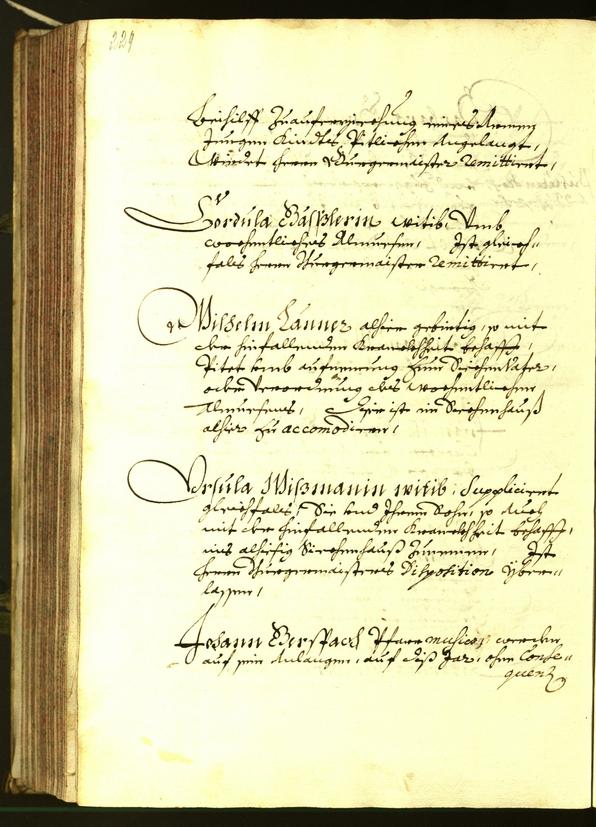 229
Beihilff zu auferziechung eines Armen
Jungen Kindts, Pitlichen Angelangt,
Würdet herrn Burgermaister remittiert,
Cordula Gässlerin witib, Umb
wochentliches Almuesen, Ist gleich-
fals herrn Burgermaister remittiert,
Wilhelm Lanner alhier gebirtig, so mit
der hinfallenden Kranckhheit behafft,
Pitet umb aufnemung zum Siechen Vater,
oder verordnung des wochentlichen
Almuesens, Sie ist im Siechenhauß
alhier zu accomodieren,
Ursula Mißmanin witib, Supplicirt
gleichfals, Sie und Ihren Sohn, so Auch
mit der hinfallenden Kranckhheit behafft,
ins alhiesig Siechenhauß zunemen, Ist
herrn Burgermaisters Disposition yber-
lassen,
Johann Ederspach Pfarr musico, werden
auf sein Anlangen, auf diß Jar, ohne Conse-
quenz